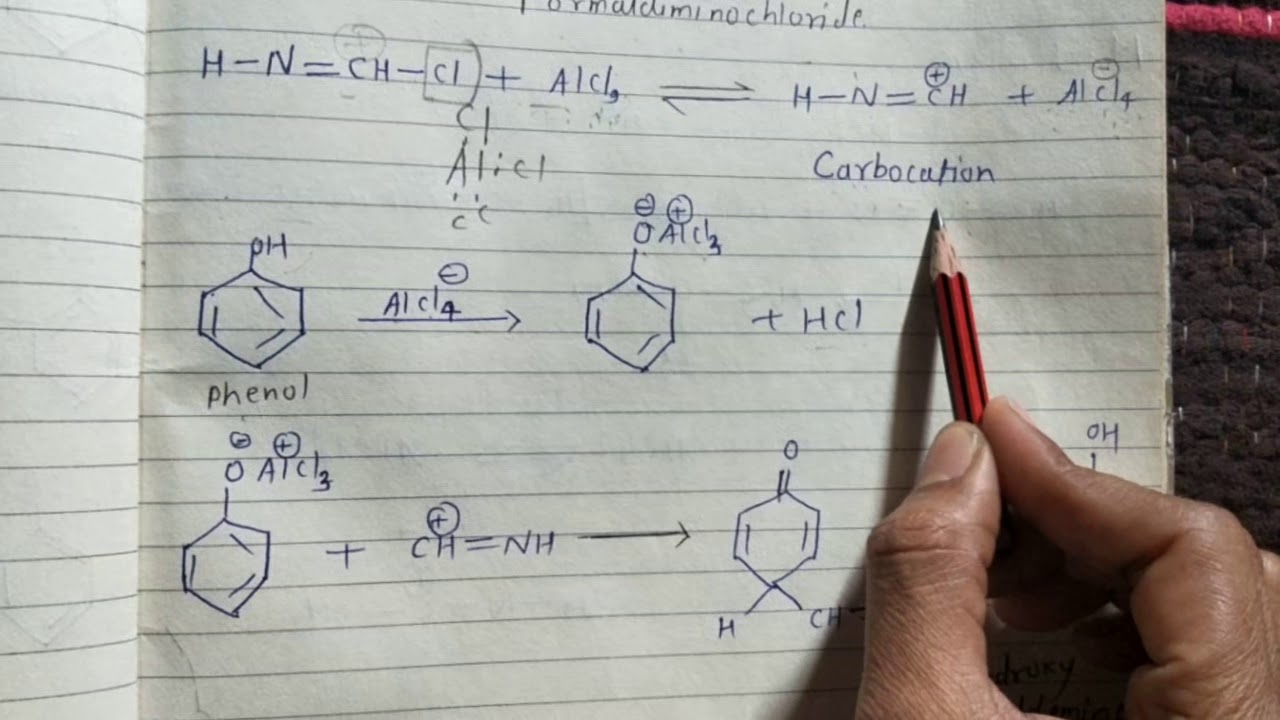 Formaldiminochloride
H-N=CH-Cl + AlCl3 ⇌ H-N=C⊕H + AlCl4⊖
Cl
Al:Cl
Carbocation
OH
⊖ ⊕
O AlCl3
AlCl4⊖
+ HCl
phenol
⊖ ⊕
O AlCl3
+ C⊕H=NH →
O
H CH
OH